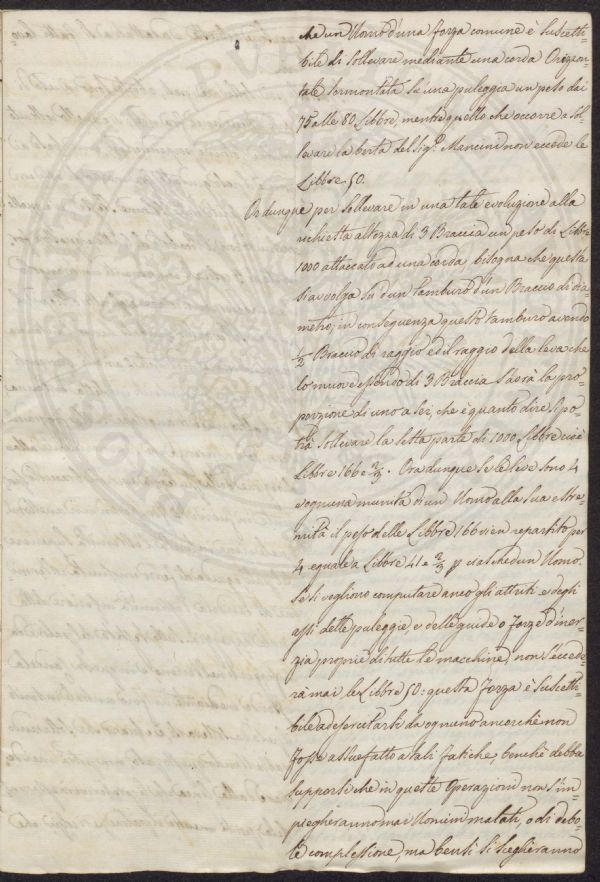 che un Uomo d'una forza comune è suscetti=
bile di sollevare mediante una corda Orizon=
tale sormontata su una puleggia un peso dai
75 alle 80 Libbre, mentre quello che occorre a sol=
levare la berta del Sig.r Mancini non eccede le
Libbre 50.
Or dunque per sollevare in una tale evoluzione alla
richiesta altezza di 3 Braccia un peso di Libbre
1000 attaccato ad una corda bisogna che questa
si avvolga su d'un Tamburo d'un Braccio di dia=
metro, in conseguenza questo tamburo avendo
1/2 Braccio di raggio ed il raggio della leva che
lo muove essendo di 3 Braccia s'avrà la pro=
porzione di uno a sei, che è quanto dire si po=
trà sollevare la sesta parte di 1000 Libbre cioè
Libbre 166 e 2/3. Ora dunque se le leve sono 4
e ognuna munita di un Uomo alla sua estre=
mità il peso delle Libbre 166 vien repartito per
4 eguale a Libbre 41 e 2/3 p ciaschedun Uomo.
Se si vogliono computare anco gli attriti e degli
assi delle puleggie, e delle guide o forze d'iner=
zia proprie di tutte le macchine, non s'eccede=
rà mai le Libbre 50: questa forza è suscetti=
bile ad esercitarsi da ognuno ancorchè non
fosse assuefatto a tali fatiche, benchè debba
supporsi che in queste Operazioni non s'im=
piegheranno mai Uomini malati, o di debo=
le complessione, ma bensì si sceglieranno